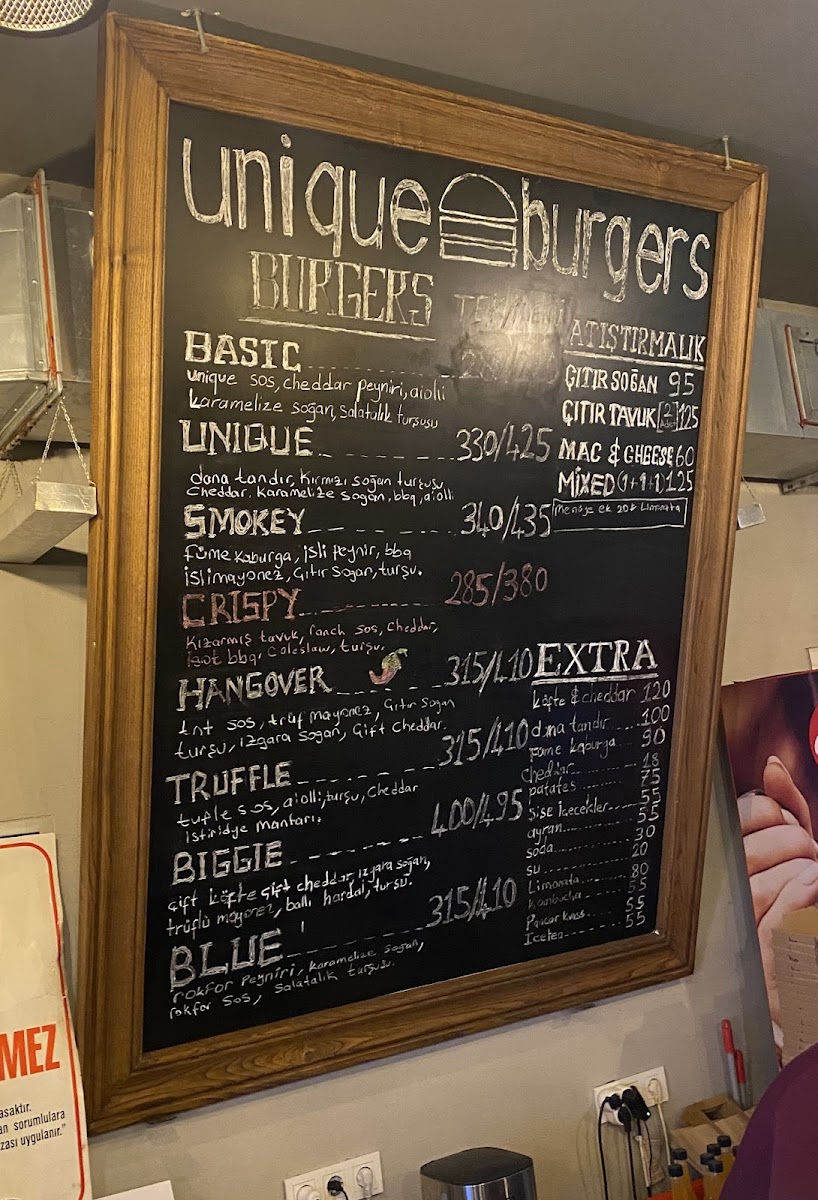 unique burgers
BURGERS
BASIC
unique sos, cheddar peyniri, aioli
karamelize soğan, salatalık turşusu
UNIQUE 330/425
dana tandır, kırmızı soğan turşusu,
cheddar, karamelize soğan, bbq, aiolli
SMOKEY 340/435
füme kaburga, isli peynir, bbq
islimayonez, Çıtır soğan, turşu.
CRISPY 285/380
Kızarmış tavuk, ranch sos, cheddar,
bbq, Coleslaw, turşu.
HANGOVER 315/410
tnt sos, trüf mayonez, Çıtır Soğan
turşu, ızgara soğan, Çift Cheddar.
TRUFFLE 315/410
tufle sos, aiolli, turşu, Cheddar
istiridye mantarı.
BIGGIE 400/495
Çift köfte Çift cheddar, ızgara soğan,
trüflü mayonez, ballı hardal, turşu.
BLUE 315/410
rokfor Peyniri, karamelize soğan,
rokfor sos, salatalık turşusu.
ATIŞTIRMALIK
ÇITIR SOĞAN 95
ÇITIR TAVUK 125
MAC & CHEESE 60
MİXED (1+1+1) 125
Menüye ek 20₺ Limonata
EXTRA
köfte & cheddar 120
dana tandır 100
Füme kaburga 90
Cheddar 18
patates 75
Şişe İçecekler 55
ayran 55
soda 30
su 20
Limonata 80
Kombucha 55
Pancar kvass 55
Icetea 55
MEZ
asaktır.
an sorumlulara
zası uygulanır."